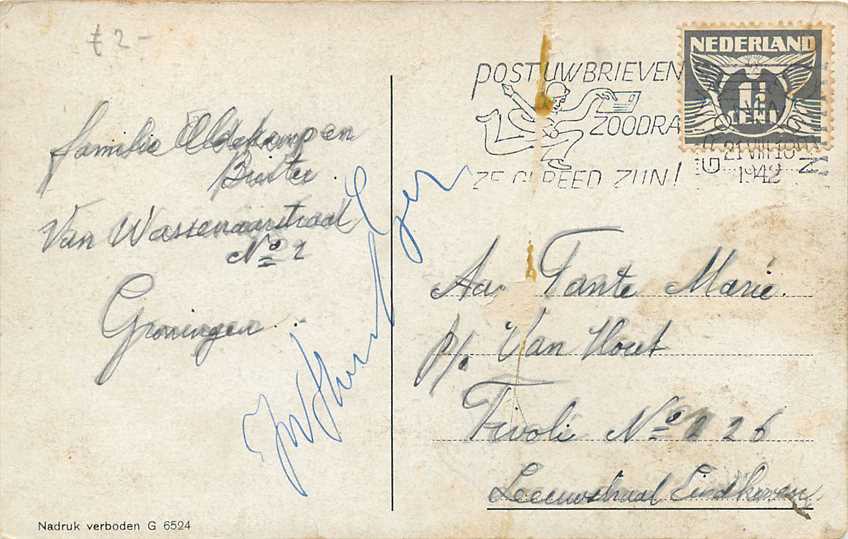 £ 2-
familie Oldekampen
Van Wassenaarstraat
No 2
Groningen
POST UW BRIEVEN
ZOODRA
ZE GEREED ZIJN!
NEDERLAND
1½
CENT
21 VIII 18
1942
Aa. Tante Marie.
p/o Van Hout
Tivoli No 226
Leeuwstraat Eindhoven
Nadruk verboden G 6524